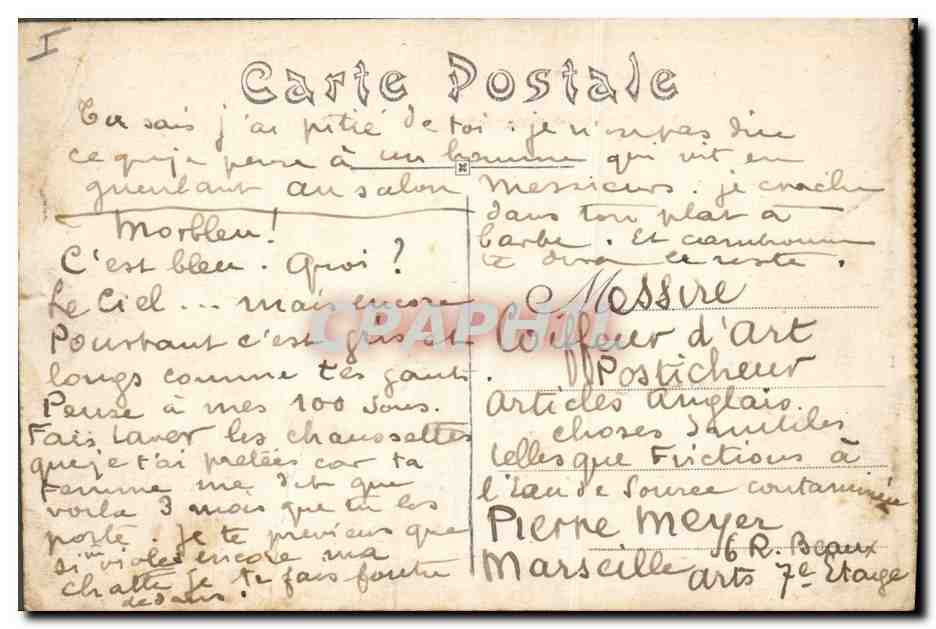 I
Carte Postale
Tu sais j'ai pitié de toi : je n'ose pas dire
ce que je pense à un homme qui vit en
gueulant au salon Messieurs. je crache
dans ton plat à
barbe. Et
te dira le reste.
Morbleu!
C'est bleu. Quoi?
Le Ciel... mais encore
Pourtant c'est gris et
longs comme tes gants.
Pense à mes 100 sous.
Fais laver les chaussettes
que je t'ai prêtées car ta
femme me dit que
voila 3 mois que tu les
porte. je te previens que
si violes encore ma
chatte je te fais foutre
dedans.
Messire
Coiffeur d'Art
Posticheur
Articles Anglais.
choses Inutiles
telles que Frictions à
l'Eau de Source contaminée
Pierre Meyer
6 R. Beaux
Marseille arts 7e Etage
CPAPHIL